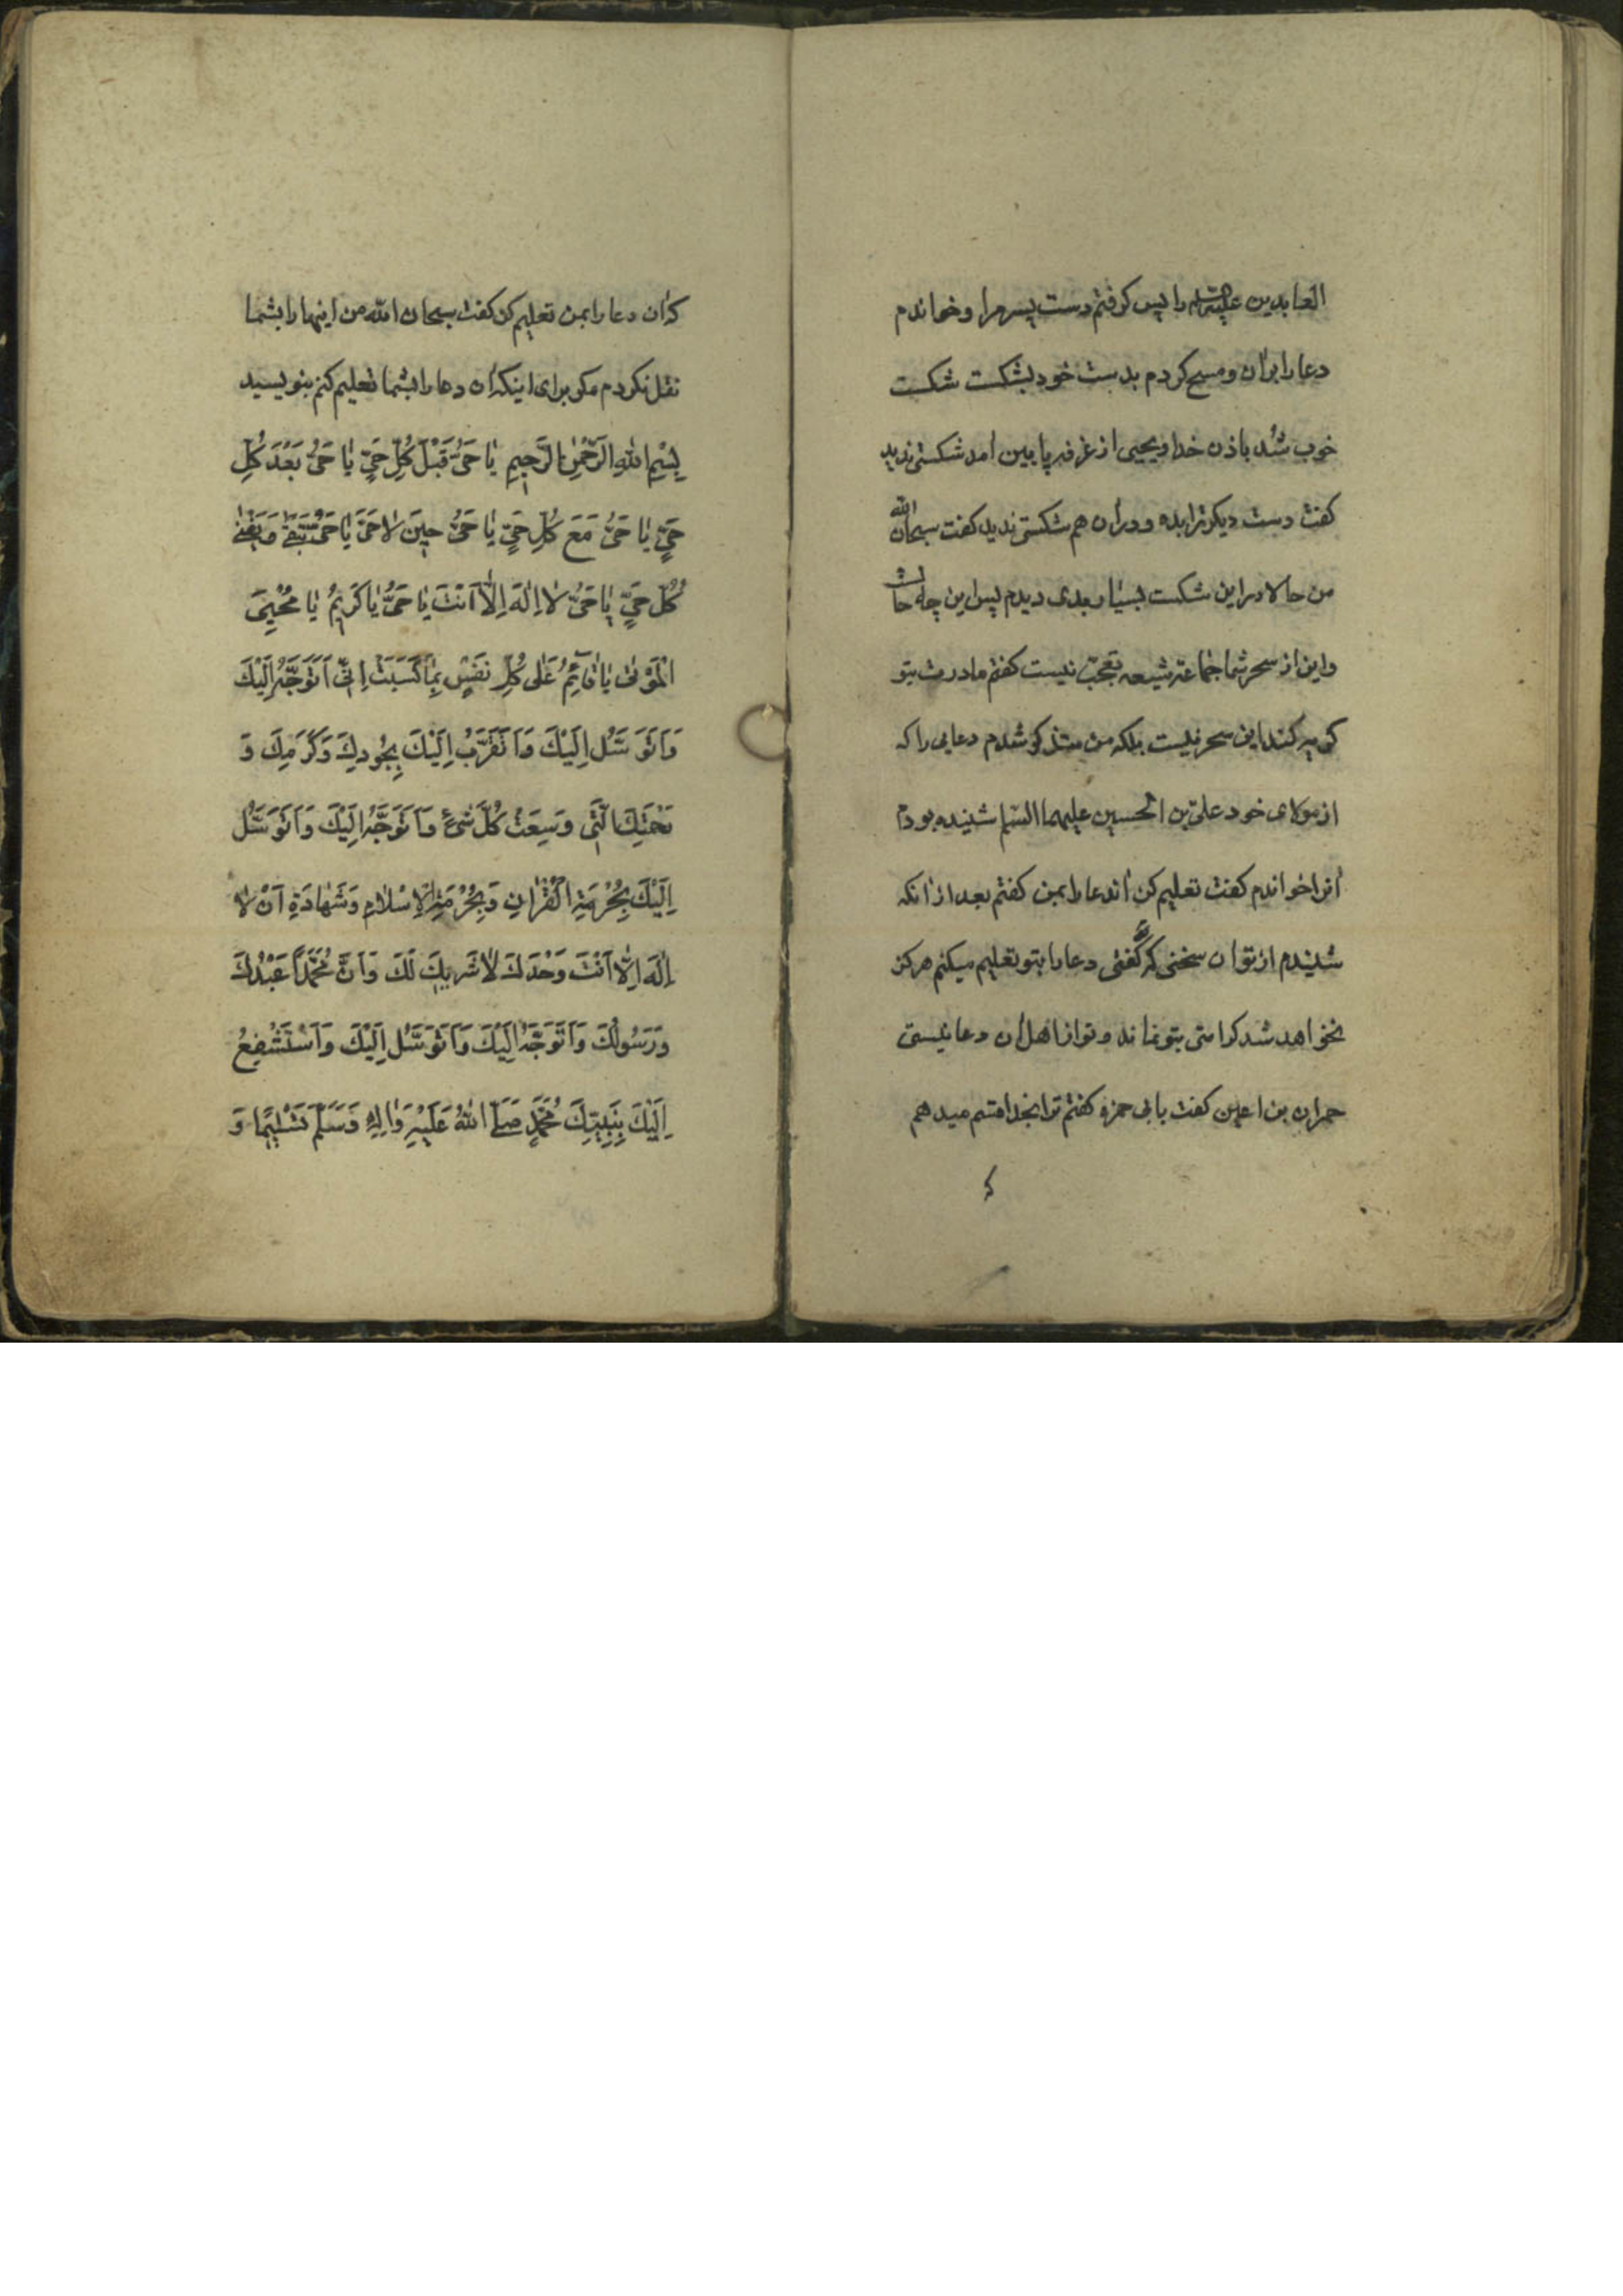 العابدین علیه السلم را پس کرفتم دست پسر مرا و خواندم
دعا را بر ان و مسح کردم بدست خود بشکست شکست
خوب شد باذن خدا و یحیی از غرفه پایین امد شکستی ندید
کفت دست دیکر ترا بده و در ان هم شکستی ندید کفت سبحان الله
من حالا در این شکست بسیار بدی دیدم پس این چه حالست
و این از سحر شما جماعة شیعه تعجب نیست کفتم مادرت بتو
کریه کند این سحر نیست بلکه من متذکر شدم دعایی را که
از مولای خود علی بن الحسین علیهما السلم شنیده بودم
انرا خواندم کفت تعلیم کن اندعا را بمن کفتم بعد از انکه
شنیدم از تو ان سخنی که کفتی دعا را بتو تعلیم میکنم هرکز
نخواهد شد کرامتی بتو نماند و تو از اهل ان دعا نیستی
حمران بن اعین کفت بابی حمزه کفتم ترا بخدا قسم میدهم
که ان دعا را بمن تعلیم کن کفت سبحان الله من اینها را بشما
نقل نکردم مکر برای اینکه ان دعا را بشما تعلیم کنم بنویسید
بِسْمِ اللّٰهِ الرَّحْمٰنِ الرَّحِیمِ یٰا حَیُّ قَبْلَ کُلِّ حَیٍّ یٰا حَیُّ بَعْدَ کُلِّ
حَیٍّ یٰا حَیُّ مَعَ کُلِّ حَیٍّ یٰا حَیُّ حِینَ لٰا حَیَّ یٰا حَیُّ یَبْقٰی وَ یَفْنٰی
کُلُّ حَیٍّ یٰا حَیُّ لٰا اِلٰهَ اِلّٰا اَنْتَ یٰا حَیُّ یٰا کَرِیمُ یٰا مُحْیِیَ
الْمَوْتیٰ یٰا قٰائِمُ عَلیٰ کُلِّ نَفْسٍ بِمٰا کَسَبَتْ اِنِّی اَتَوَجَّهُ اِلَیْكَ
وَ اَتَوَسَّلُ اِلَیْكَ وَ اَتَقَرَّبُ اِلَیْكَ بِجُودِكَ وَ کَرَمِكَ وَ
رَحْمَتِكَ الَّتِی وَسِعَتْ کُلَّ شَیْءٍ وَ اَتَوَجَّهُ اِلَیْكَ وَ اَتَوَسَّلُ
اِلَیْكَ بِحُرْمَةِ الْقُرْاٰنِ وَ بِحُرْمَةِ الْاِسْلٰامِ وَ شَهٰادَةِ اَنْ لٰا
اِلٰهَ اِلّٰا اَنْتَ وَحْدَكَ لٰا شَرِیكَ لَكَ وَ اَنَّ مُحَمَّدًا عَبْدُكَ
وَ رَسُولُكَ وَ اَتَوَجَّهُ اِلَیْكَ وَ اَتَوَسَّلُ اِلَیْكَ وَ اَسْتَشْفِعُ
اِلَیْكَ بِنَبِیِّكَ مُحَمَّدٍ صَلَّی اللّٰهُ عَلَیْهِ وَ اٰلِهِ وَ سَلَّمَ تَسْلِیمًا وَ